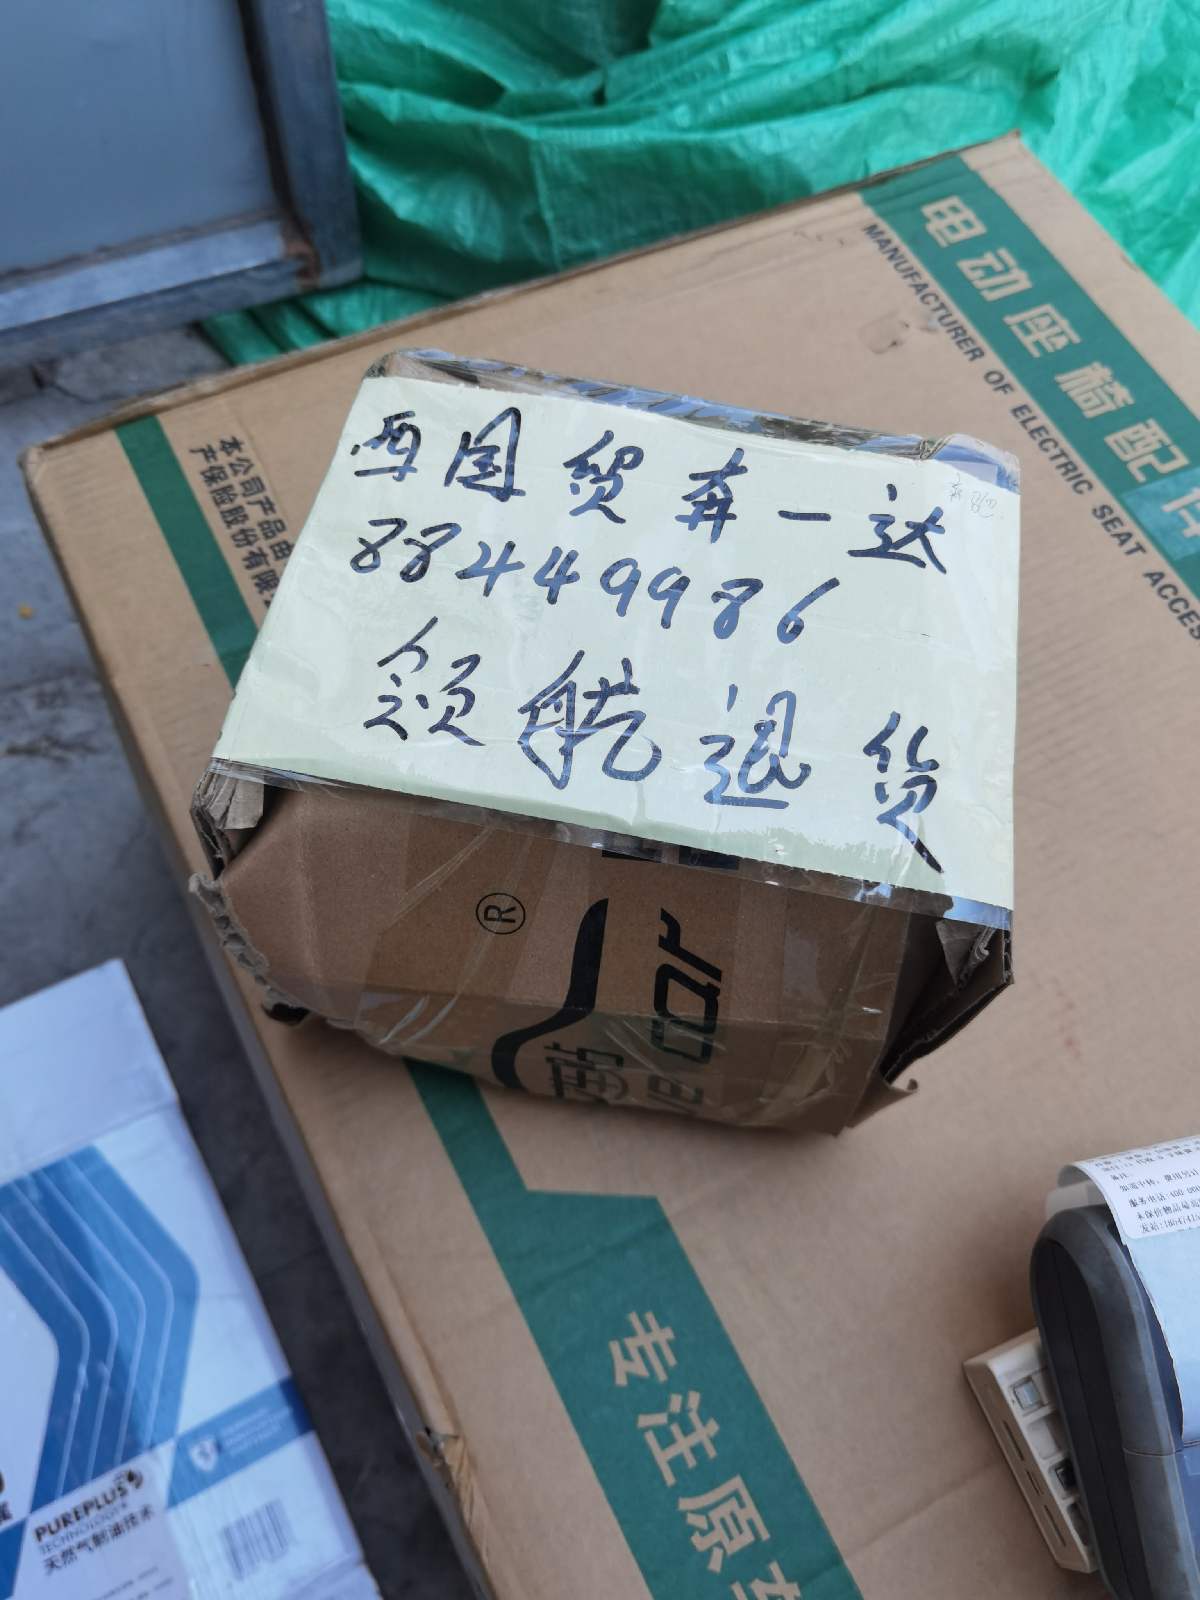 西国贸奔一达
88449986
领航退货
电动座椅配件
MANUFACTURER OF ELECTRIC SEAT ACCES
本公司产品由
产保险股份有限
®
car
专注原
PUREPLUS
TECHNOLOGY
天然气制油技术